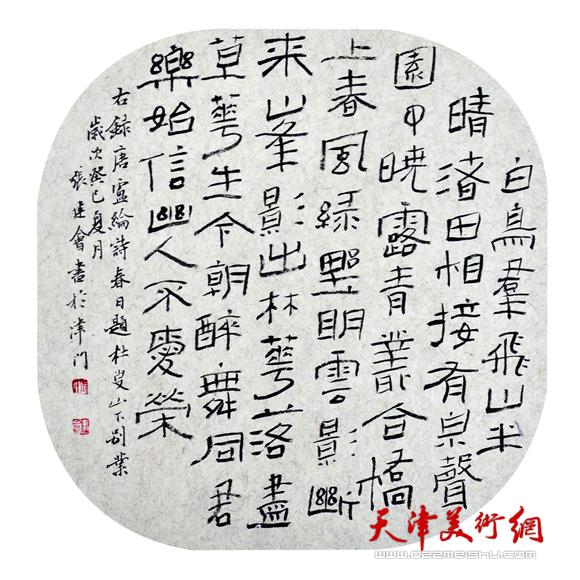 白鳥羣飛山半
晴渚田相接有泉聲
園中曉露青叢合橋
上春風緑野明雲影斷
来峯影出林華落盡
草華生今朝醉舞同君
樂始信幽人不愛榮
右録唐盧綸詩春日題杜叟山下别業
歲次癸巳夏月
張建會書於津門
天津美術網
www.022meishu.com